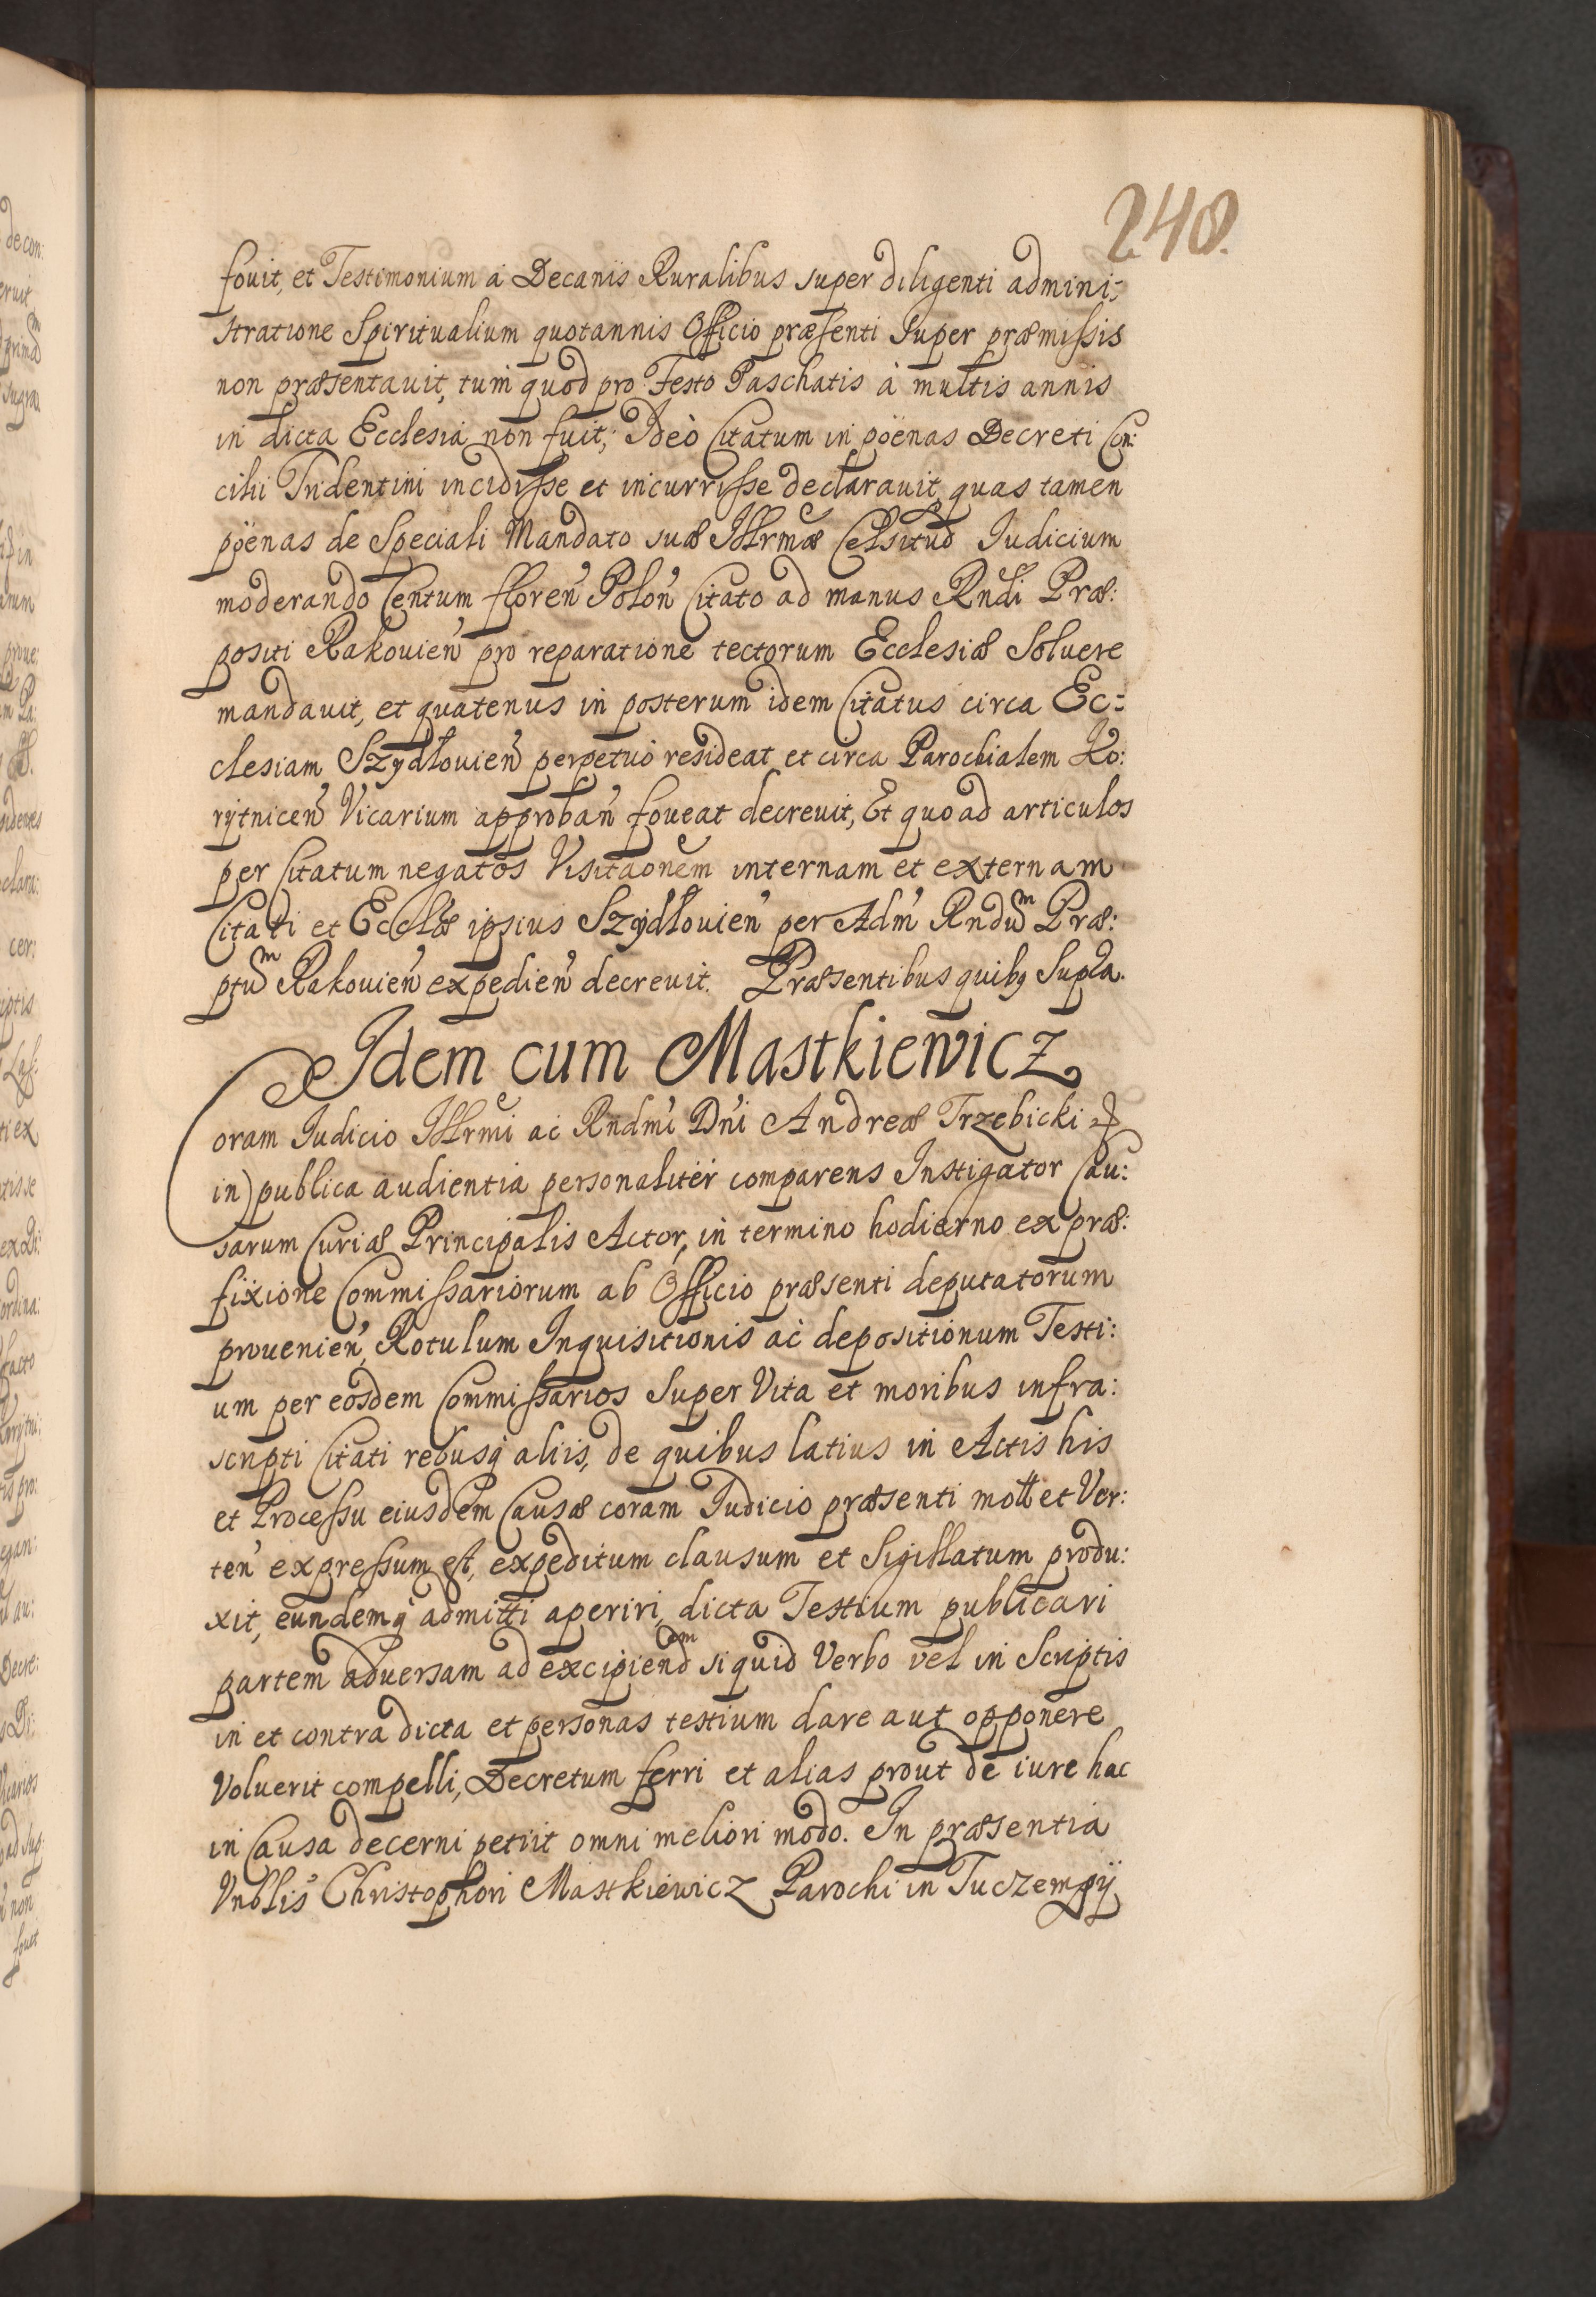 248.
fouit, et Testimonium à Decanis Ruralibus super diligenti admini:
stratione Spiritualium quotannis Officio præsenti Super præmissis
non præsentauit, tum quod pro Festo Paschatis à multis annis
in dicta Ecclesia non fuit; Ideò Citatum in pöenas Decreti Con:
cilii Tridentini incidisse et incurrisse declarauit, quas tamen
pöenas de Speciali Mandato suæ Illrmæ Celsitud Iudicium
moderando Centum floren Polon Citato ad manus Rndi Præ:
positi Rakouien pro reparatione tectorum Ecclesiæ Soluere
mandauit, et quatenus in posterum idem Citatus circa Ec:
clesiam Szydłouien perpetuò resideat et circa Parochialem Ko:
rytnicen Vicarium approban foueat decreuit, Et quo ad articulos
per Citatum negatos Visitaonem internam et externam
Citati et Ecclæ ipsius Szydłouien per Adm Rndum Præ:
ptum Rakouien expedien decreuit. Præsentibus quibq Supra.
Idem cum Mastkiewicz
Coram Iudicio Illrmi ac Rndmi Dni Andreæ Trzebicki
in publica audientia personaliter comparens Instigator Cau:
sarum Curiæ Principalis Actor, in termino hodierno ex præ:
fixione Commissariorum ab Officio præsenti deputatorum
prouenien, Rotulum Inquisitionis ac depositionum Testi:
um per eosdem Commissarios Super Vita et moribus infra:
scripti Citati rebusq aliis, de quibus latius in Actis his
et Processu eiusdem Causæ coram Iudicio præsenti mott et Ver:
ten expressum est, expeditum clausum et Sigillatum produ:
xit, eundemq admitti aperiri, dicta Testium publicari
partem aduersam ad excipiendam siquid Verbo vel in Scriptis
in et contra dicta et personas testium dare aut opponere
Voluerit compelli, Decretum ferri et alias prout de iure hac
in Causa decerni petiit omni meliori modo. In præsentia
Vnblis Christophori Mastkiewicz Parochi in Tuczempÿ